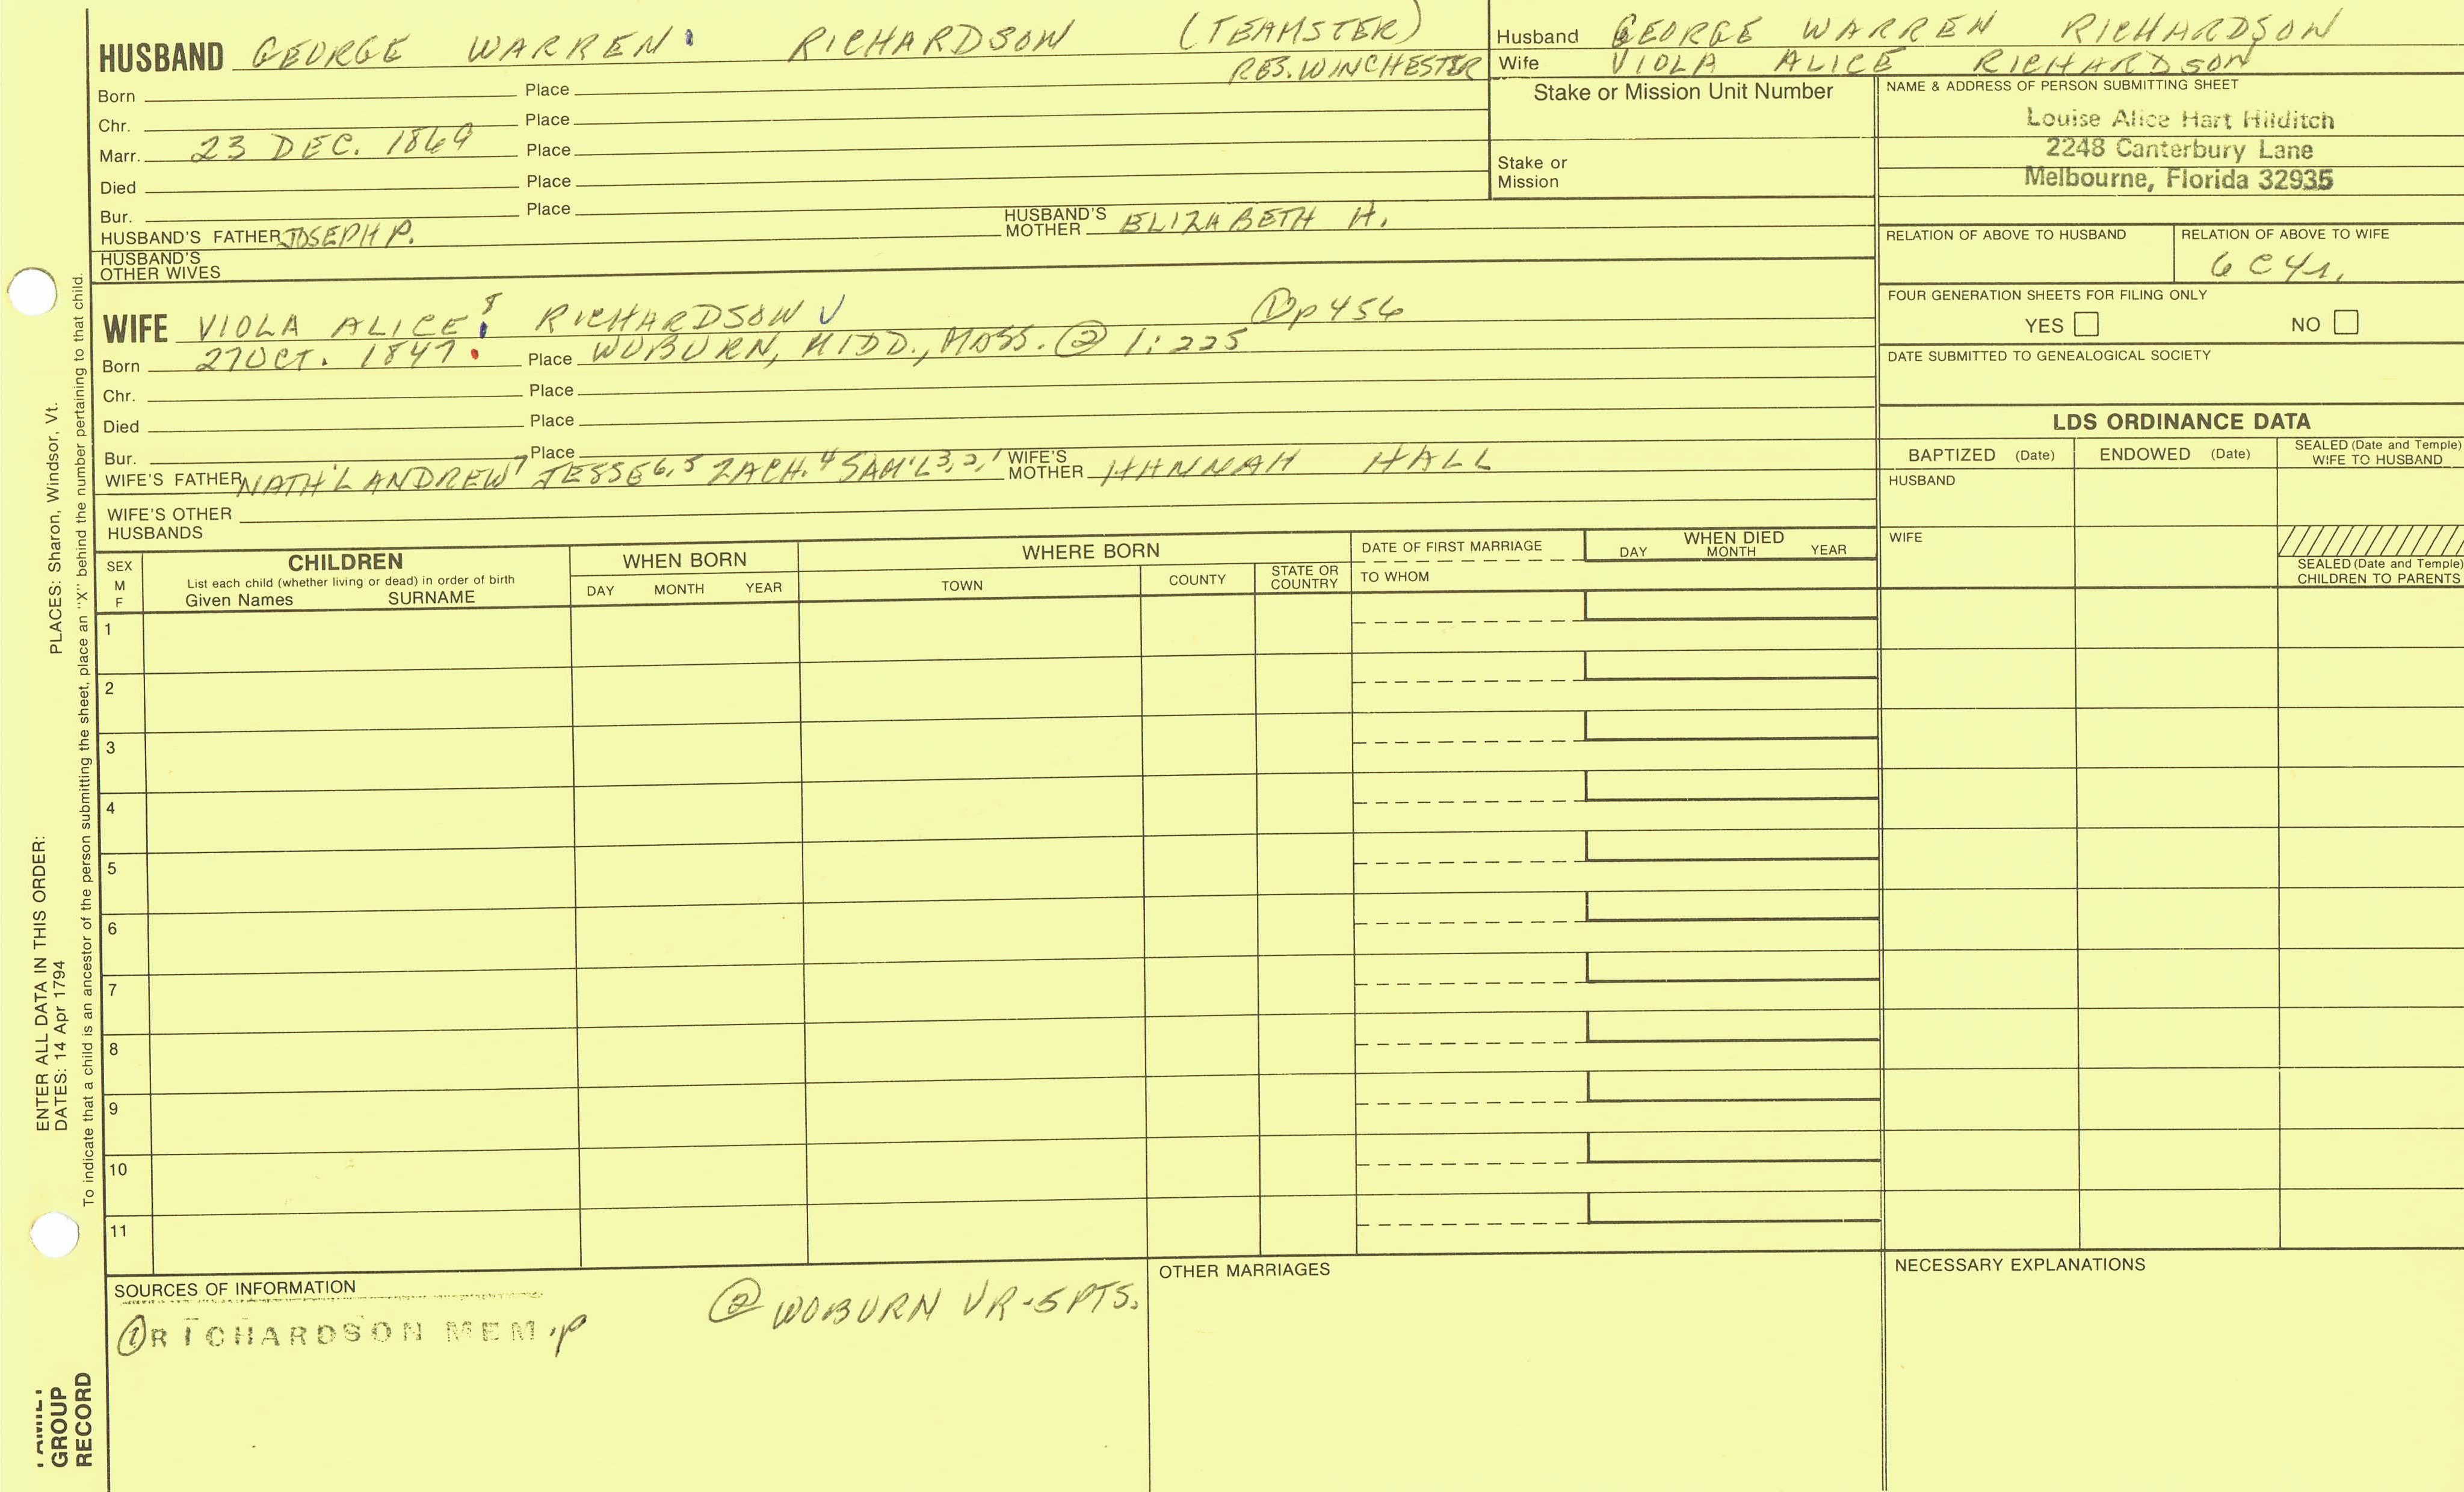 HUSBAND GEORGE WARREN RICHARDSON (TEAMSTER)
RES. WINCHESTER
Born Place
Chr. Place
Marr. 23 DEC. 1869 Place
Died Place
Bur. Place
HUSBAND'S FATHER JOSEPH P. HUSBAND'S MOTHER ELIZABETH H.
HUSBAND'S OTHER WIVES
WIFE VIOLA ALICE 8 RICHARDSON ① p 456
Born 27 OCT. 1847 Place WOBURN, MIDD., MASS. ② 1:225
Chr. Place
Died Place
Bur. Place
WIFE'S FATHER NATH'L ANDREW 7 JESSE 6,5 ZACH. 4 SAM'L 3,2,1 WIFE'S MOTHER HANNAH HALL
WIFE'S OTHER HUSBANDS
Husband GEORGE WARREN RICHARDSON
Wife VIOLA ALICE RICHARDSON
Stake or Mission Unit Number
Stake or Mission
NAME & ADDRESS OF PERSON SUBMITTING SHEET
Louise Alice Hart Hilditch
2248 Canterbury Lane
Melbourne, Florida 32935
RELATION OF ABOVE TO HUSBAND
RELATION OF ABOVE TO WIFE
6 C 4 r.
FOUR GENERATION SHEETS FOR FILING ONLY
YES NO
DATE SUBMITTED TO GENEALOGICAL SOCIETY
LDS ORDINANCE DATA
BAPTIZED (Date) ENDOWED (Date) SEALED (Date and Temple) WIFE TO HUSBAND
HUSBAND
WIFE
SEALED (Date and Temple) CHILDREN TO PARENTS
SEX M F
CHILDREN
List each child (whether living or dead) in order of birth
Given Names SURNAME
WHEN BORN
DAY MONTH YEAR
WHERE BORN
TOWN COUNTY STATE OR COUNTRY
DATE OF FIRST MARRIAGE
TO WHOM
WHEN DIED
DAY MONTH YEAR
1
2
3
4
5
6
7
8
9
10
11
SOURCES OF INFORMATION
① RICHARDSON MEM. p
② WOBURN VR-5 PTS.
OTHER MARRIAGES
NECESSARY EXPLANATIONS
ENTER ALL DATA IN THIS ORDER:
DATES: 14 Apr 1794 PLACES: Sharon, Windsor, Vt.
To indicate that a child is an ancestor of the person submitting the sheet, place an "X" behind the number pertaining to that child.
FAMILY
GROUP
RECORD